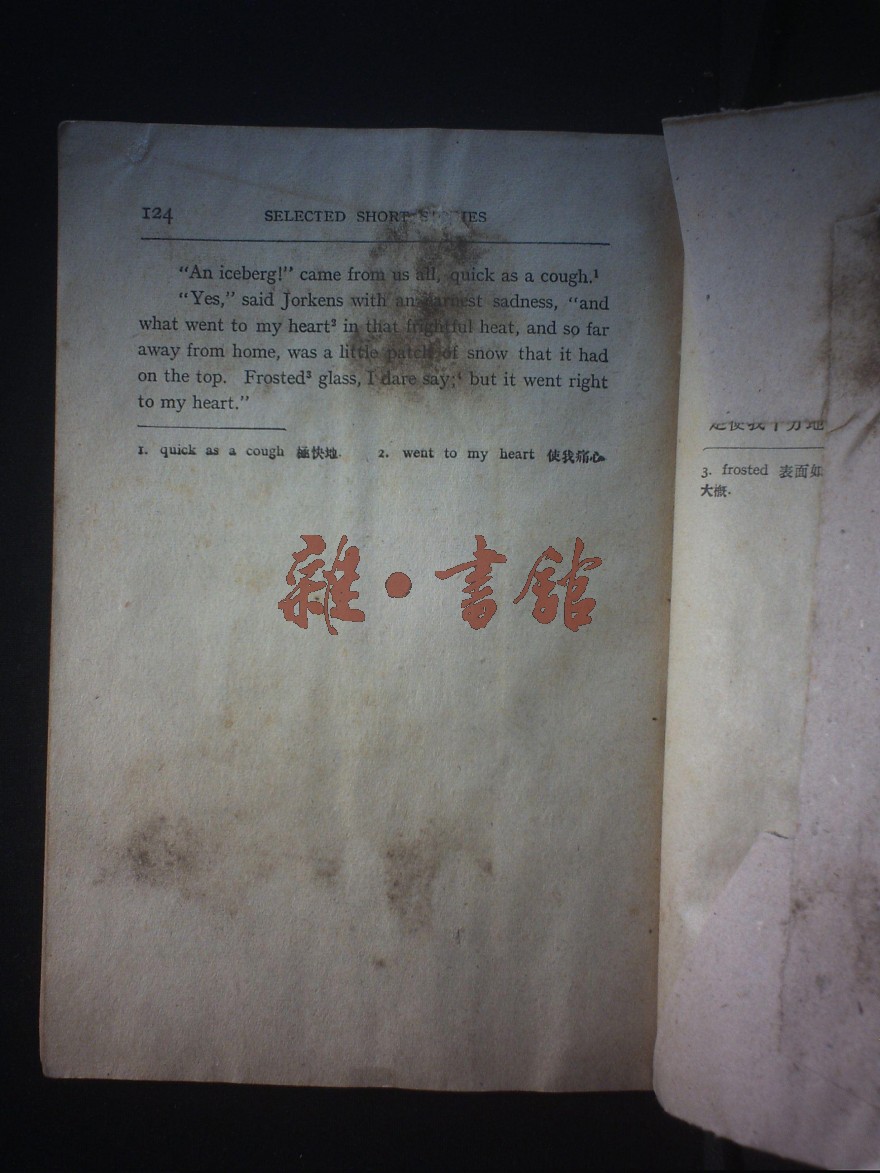 124 SELECTED SHORT STORIES
“An iceberg!” came from us all, quick as a cough.¹
“Yes,” said Jorkens with an earnest sadness, “and
what went to my heart² in that frightful heat, and so far
away from home, was a little patch of snow that it had
on the top. Frosted³ glass, I dare say;⁴ but it went right
to my heart.”
1. quick as a cough 極快地. 2. went to my heart 使我痛心.
雜·書館
3. frosted 表面如
大概.